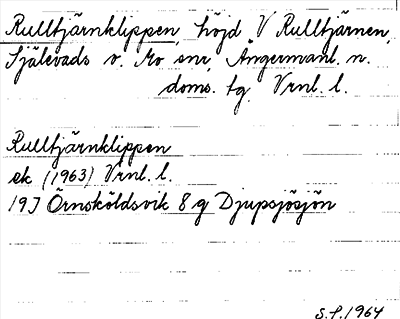 Rulltjärnklippen, höjd V Rulltjärnen,
Själevads o. Mo snr, Ångermanl. n.
doms. tg Vrnl. l.
Rulltjärnklippen
ek (1963) Vrnl. l.
19J Örnsköldsvik 8 g Djupsjösjön
S.P. 1964